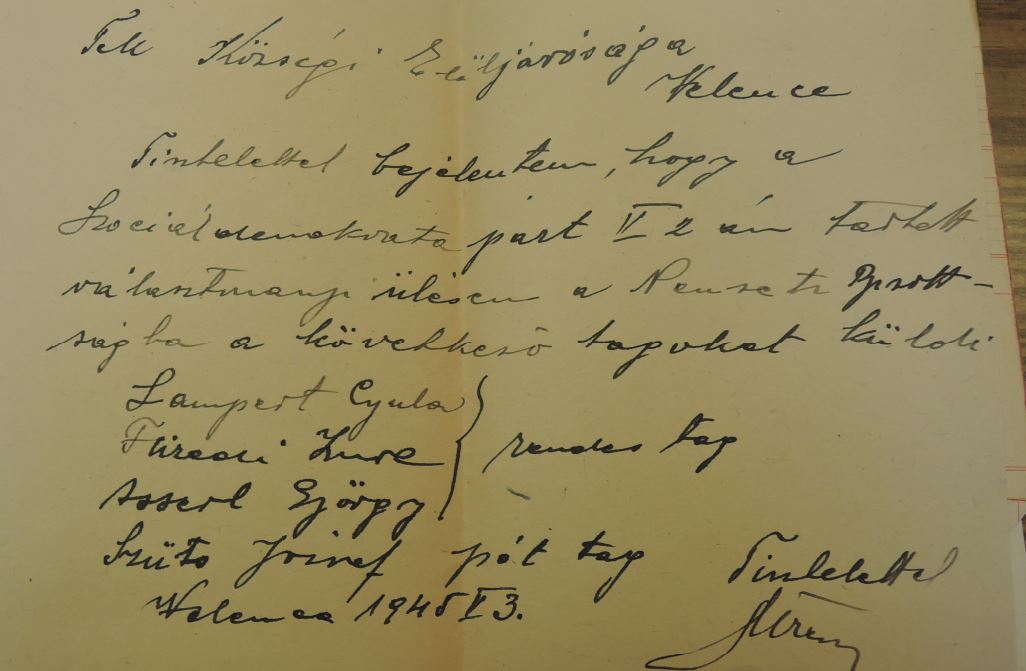 Tek Községi Elüljárósága
Velence
Tisztelettel bejelentem, hogy a
Szociáldemokrata párt V 2 án tartott
választmanyi ülésen a Nemzeti Bizott-
ságba a következő tagokat küldi
Lampert Gyula
Füredi Imre
György
rendes tag
Szüto József pót tag
Tisztelettel
Velence 1945 V 3.